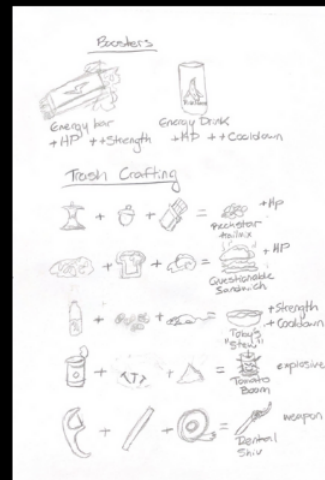 Boosters
Energy bar
+HP ++Strength
Energy Drink
+HP ++Cooldown
Trash Crafting
+ + = +HP
Rockstar
trailmix
+ + = +HP
Questionable
Sandwich
+ + = +Strength
+Cooldown
Toby's
"Stew"
+ + = explosive
Tomato
Boom
+ + = weapon
Dental
Shiv